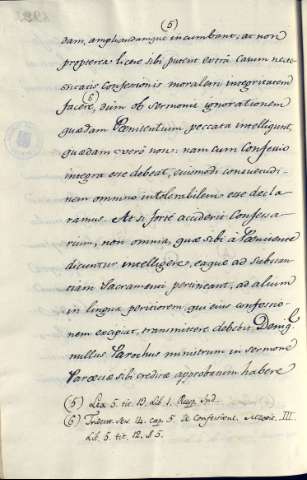 (5)
dam, ampliandamque incumbant, at non
propterea licere sibi putent extra casum neces-
sitatis confessionis moralem integritatem
facere, (6) dum ob Sermonis ignorationem
quædam Pœnitentium, peccata intelligunt,
quædam verò non: nam cum Confessio
integra esse debeat, eiusmodi consuetudi-
nem omnino intolerabilem esse decla-
ramus. At si fortè acciderit Confessa-
rium, non omnia, quæ sibi à Pœnitente
dicuntur intelligere, eaque ad substan-
tiam Sacramenti pertineant, ad alium
in lingua peritiorem, qui eius confessio-
nem excipiat, transmittere debebit. Deniq.
nullus Parochus ministrum in sermone
Parœciæ sibi creditæ approbatum habere
(5) Lex 5. tit. 19. Lib. 1. Recop. Ind.
(6) Trident. Ses. 14. cap. 5. de Confession. Mexic. III
Lib. 5. tit. 12. § 5.